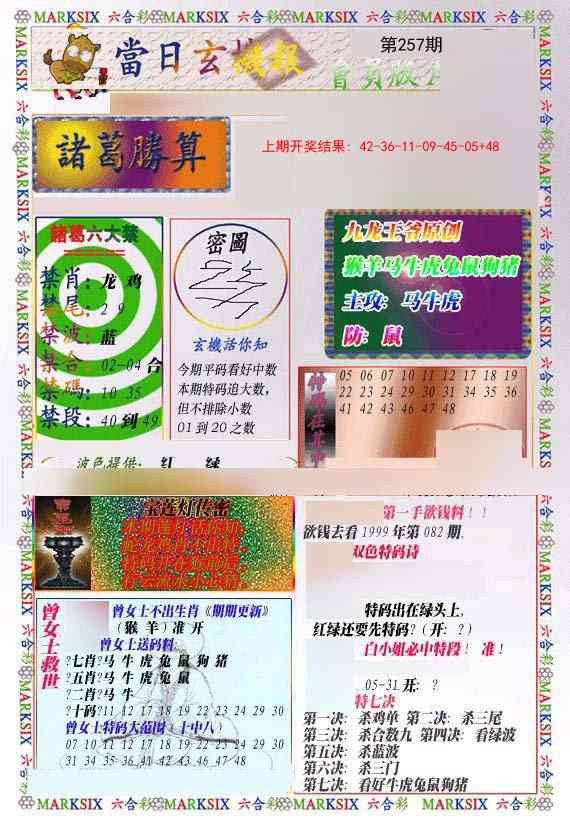 MARKSIX 六合彩 MARKSIX 六合彩 MARKSIX 六合彩 MARKSIX 六合彩
當日玄機報
第257期
會員版
諸葛勝算
上期开奖结果: 42-36-11-09-45-05+48
諸葛六大禁
禁肖: 龙 鸡
禁尾: 2 9
禁波: 蓝
禁合: 02-04 合
禁碼: 10 35
禁段: 40 到 49
波色提供: 红 绿
密圖
玄機活你知
今期平码看好中数
本期特码追大数，
但不排除小数
01 到 20 之数
九龙王爷原创
猴羊马牛虎兔鼠狗猪
主攻: 马牛虎
防: 鼠
特碼在其中
05 06 07 10 11 12 17 18 19
22 23 24 29 30 31 34 35 36
41 42 43 46 47 48
宝莲灯传密
曾女士救世
曾女士不出生肖《期期更新》
（猴 羊）准 开
曾女士送码料:
?七肖?马 牛 虎 兔 鼠 狗 猪
?五肖?马 牛 虎 兔 鼠
?二肖?马 牛
?十码?11 12 17 18 19 22 23 24 29 30
曾女士特码大范围（十中八）
07 10 11 12 17 18 19 22 23 24 29 30
31 34 35 36 41 42 43 46 47 48
第一手欲钱料！！
欲钱去看 1999 年第 082 期,
双色特码诗
特码出在绿头上,
红绿还要先特码?（开: ?）
白小姐必中特段！ 准！
05-31 开: ?
特七决
第一决: 杀鸡单 第二决: 杀三尾
第三决: 杀合数九 第四决: 看绿波
第五决: 杀蓝波
第六决: 杀三门
第七决: 看好牛虎兔鼠狗猪
MARKSIX 六合彩 MARKSIX 六合彩 MARKSIX 六合彩 MARKSIX 六合彩